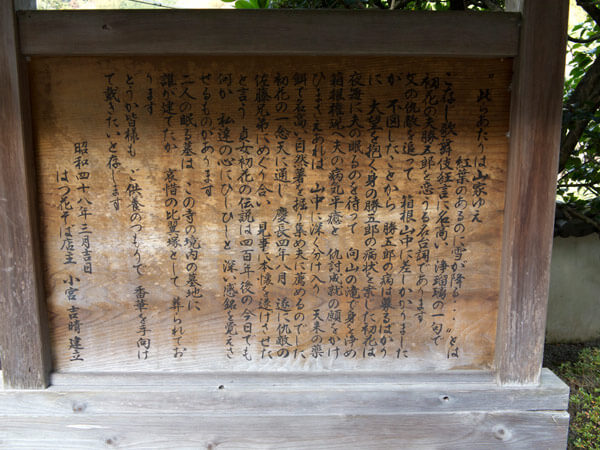 "此のあたりは山家ゆえ
紅葉のあるのに雪が降る・・・"とは
ご存じ歌舞伎狂言に名高い 浄瑠璃の一句で
初花の夫勝五郎を恋うる名台詞であります
父の仇敵を追って 箱根山中に差しかかりました
が 不図したことから 勝五郎の病は募るばかり
に 大望を抱く身の勝五郎の病状を案じた初花は
夜毎に夫の眠るのを待って 向山の滝で身を浄め
箱根権現へ夫の病気平癒と 仇討成就の願をかけ
ひまさえあれば 山中に深く分け入り 天来の楽
餌で名高い自然薯を掘り集め夫に薦めるのでした
初花の一念天に通じ 慶長四年八月 遂に仇敵の
佐藤兄弟にめぐり合い 見事に本懐を遂げさせた
と言う 貞女初花の伝説は四百年後の今日でも
何か 私達の心にひしひしと 深い感銘を覚えさ
せるものがあります
二人の眠る墓は この寺の境内の墓地に
誰が建てたか 哀惜の比翼塚として 葬られてお
ります
どうか皆様も ご供養のつもりで 香華を手向け
て戴きたいと存じます
昭和四十八年三月吉日
はつ花そば店主 小宮吉晴 建立